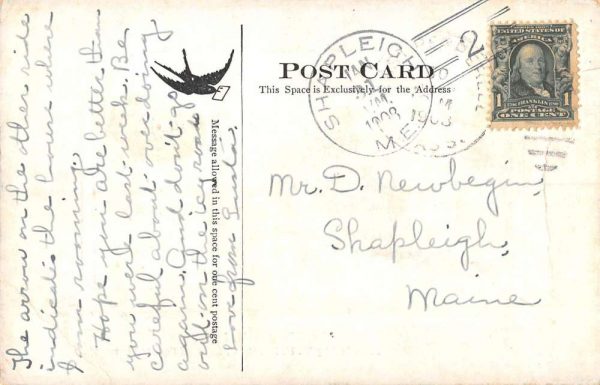 The arrow on the other side
indicates the house where
I am rooming.
Hope you are better than
you were last week. Be
careful about overdoing
again. And don't go
out on the icy road
Love from
Message allowed in this space for one cent postage
POST CARD
This Space is Exclusively for the Address
SHAPLEIGH
JAN
1908
ME.
2
1908
UNITED STATES OF
AMERICA
FRANKLIN
1 1
POSTAGE
ONE CENT
Mr. D. Newbegin,
Shapleigh,
Maine